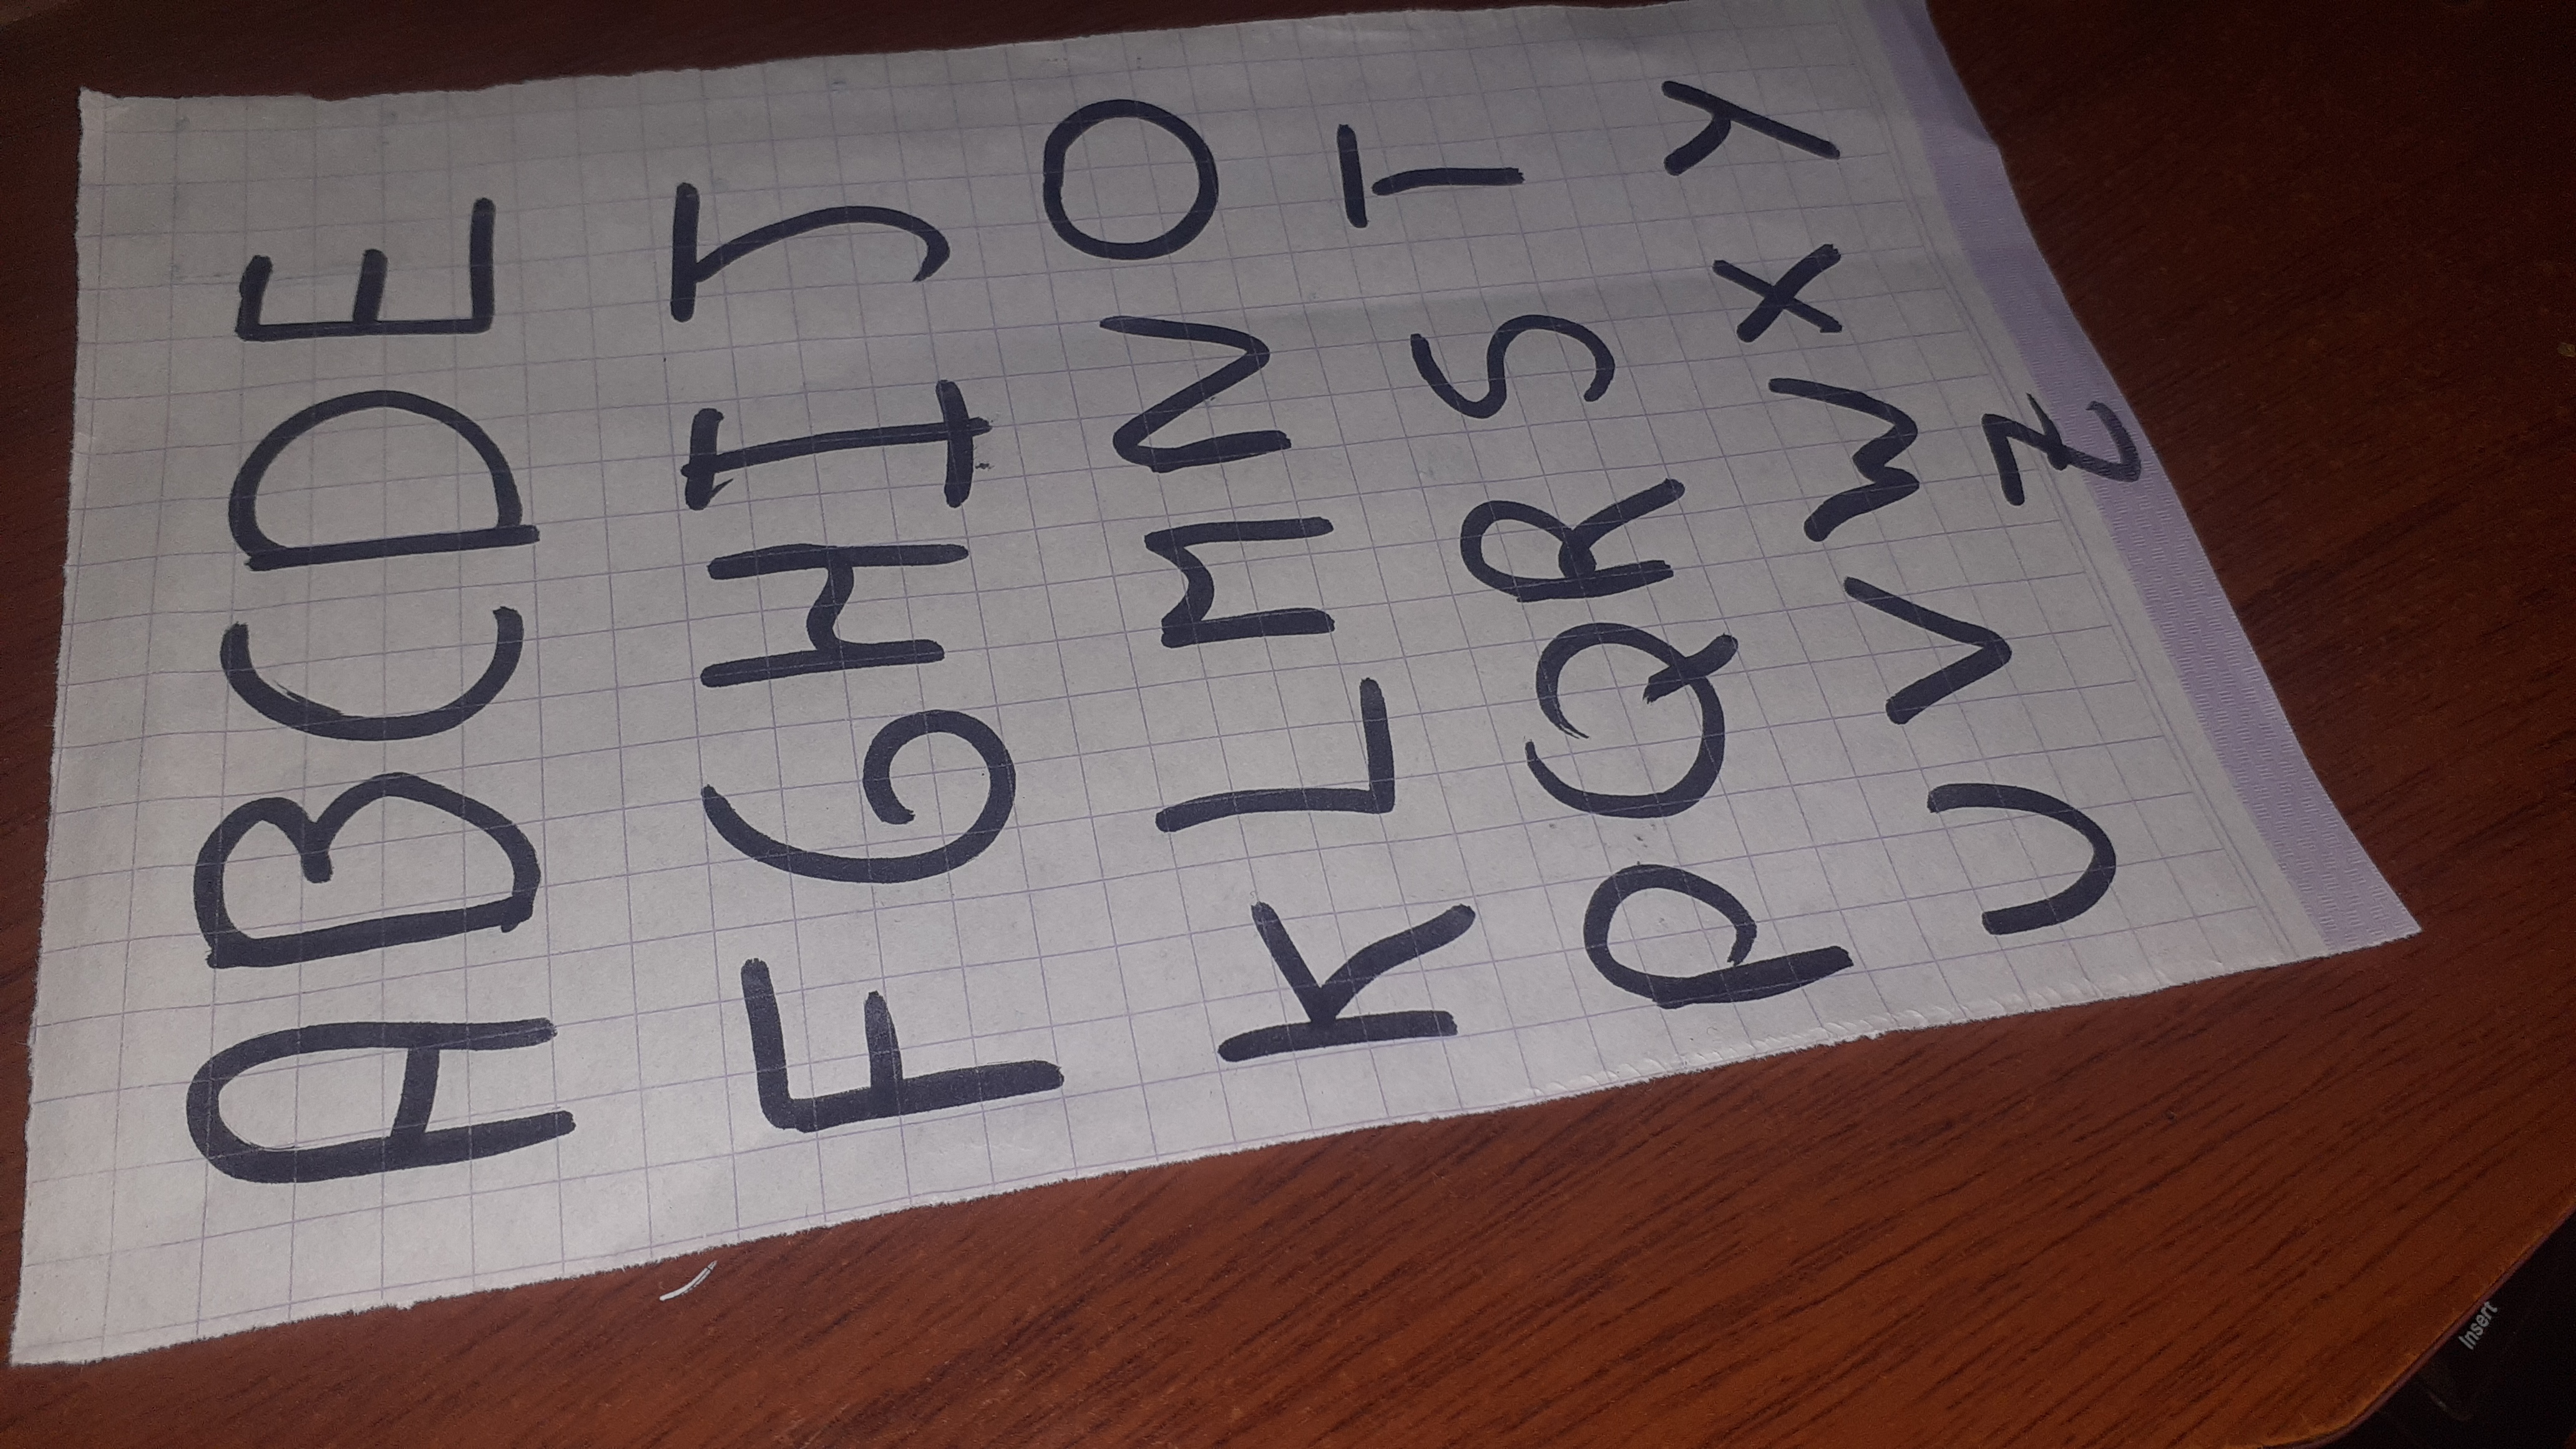 ABCDE
FGHIJ
KLMNO
PQRST
UVWXY
Z
Insert